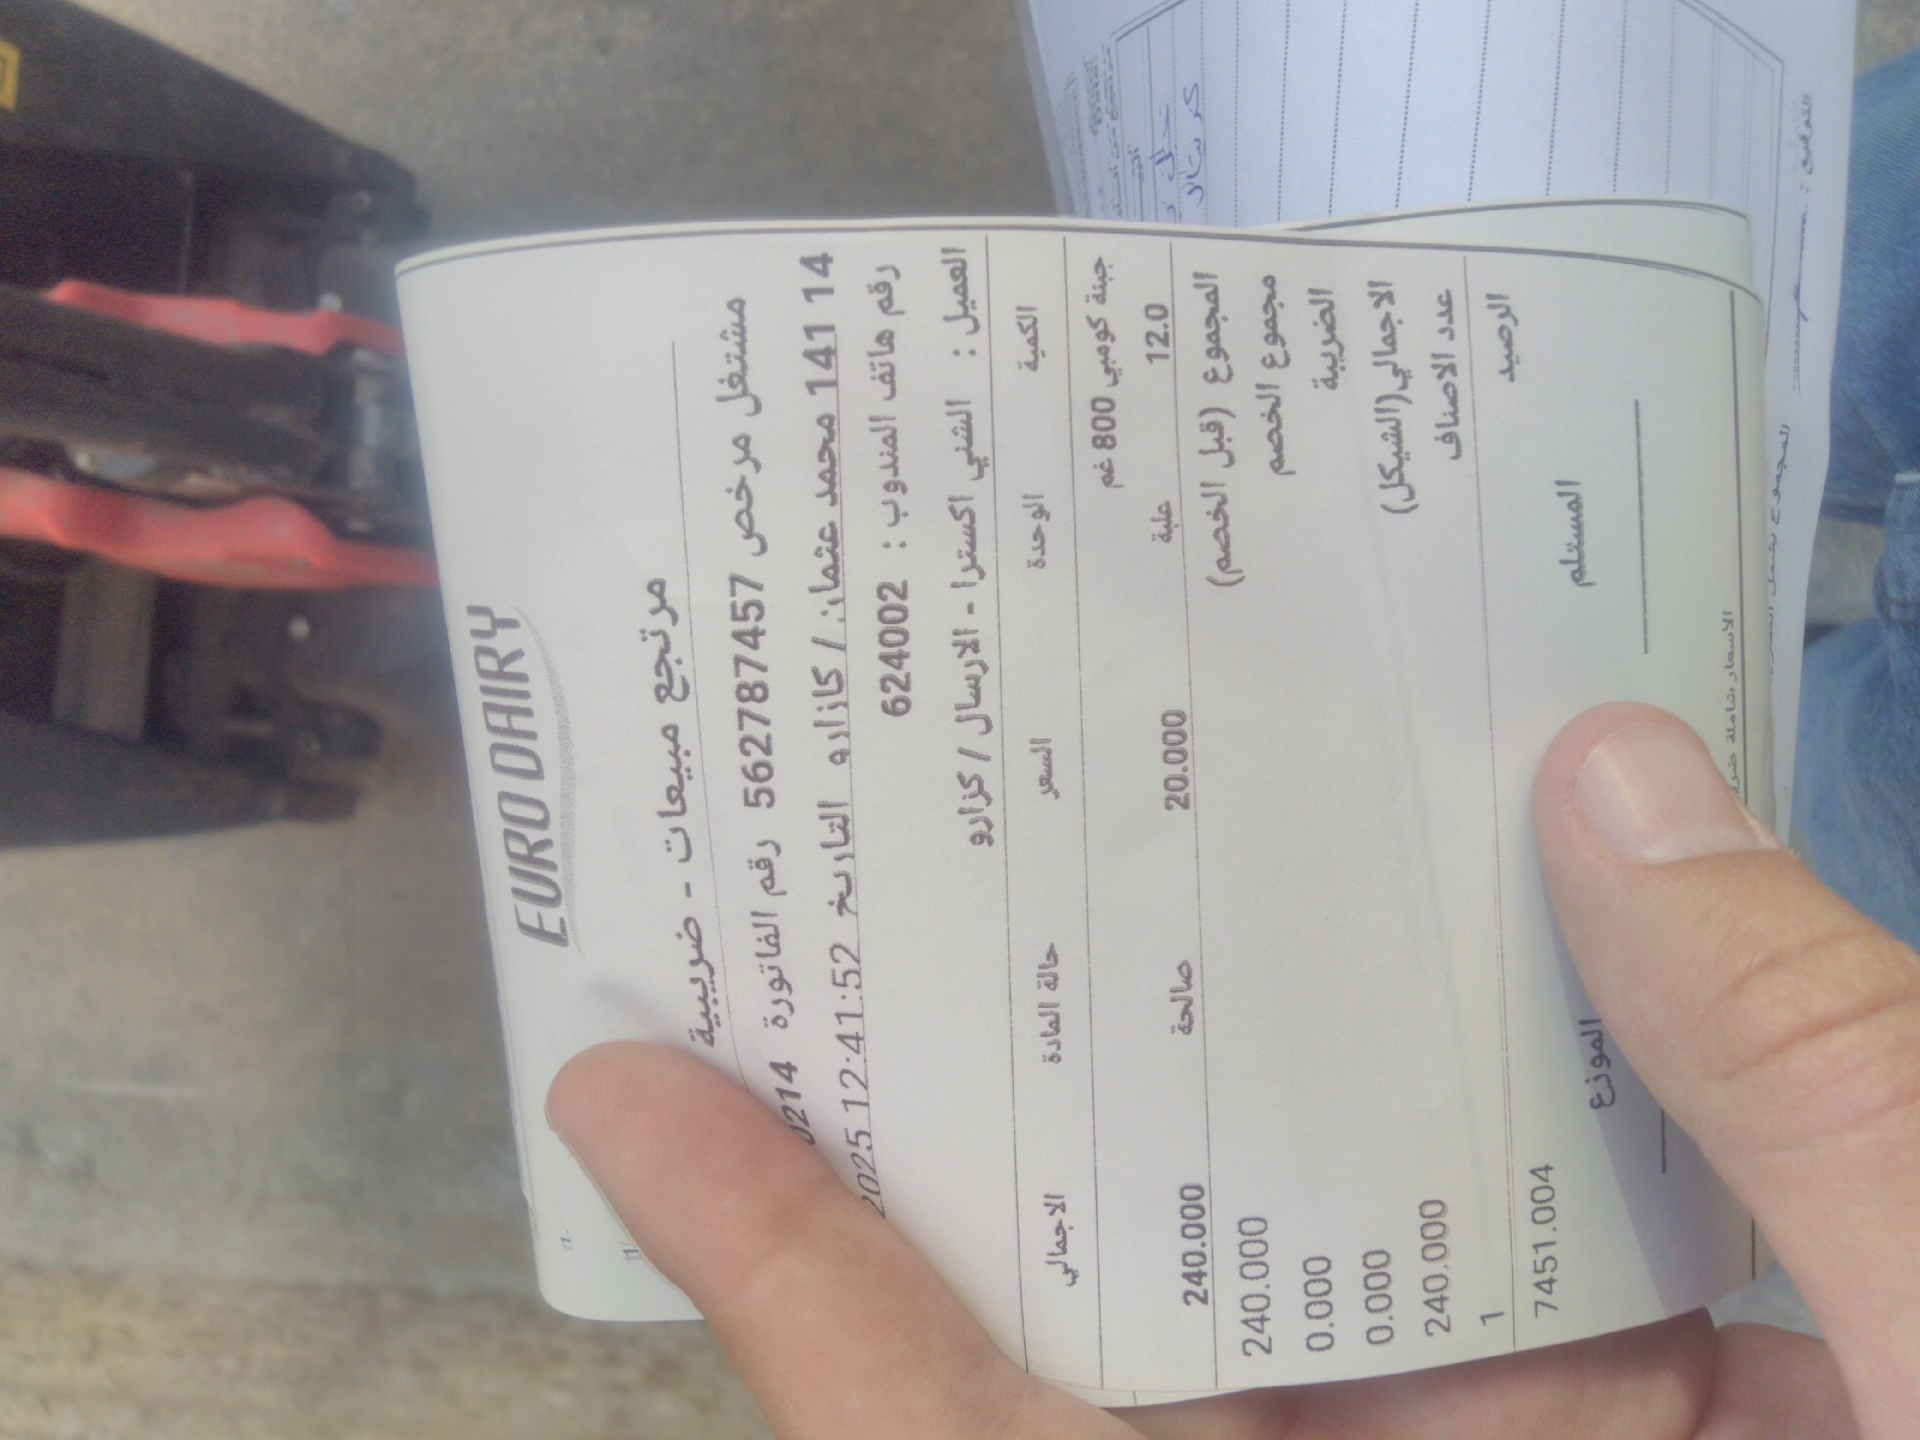 EURO DAIRY
مرتجع مبيعات - ضريبية
مشتغل مرخص 562787457 رقم الفاتورة 0214
14 141 محمد عثمان / كازارو التاريخ 12:41:52 2025
رقم هاتف المندوب : 624002
العميل : الشني اكسترا - الارسال / كزارو
الكمية الوحدة السعر حالة المادة الاجمالي
جبنة كومبي 800 غم
12.0 علبة 20.000 صالحة 240.000
المجموع (قبل الخصم) 240.000
مجموع الخصم 0.000
الضريبة 0.000
الاجمالي(الشيكل) 240.000
عدد الاصناف 1
الرصيد 7451.004
المستلم الموزع
الاسعار شاملة